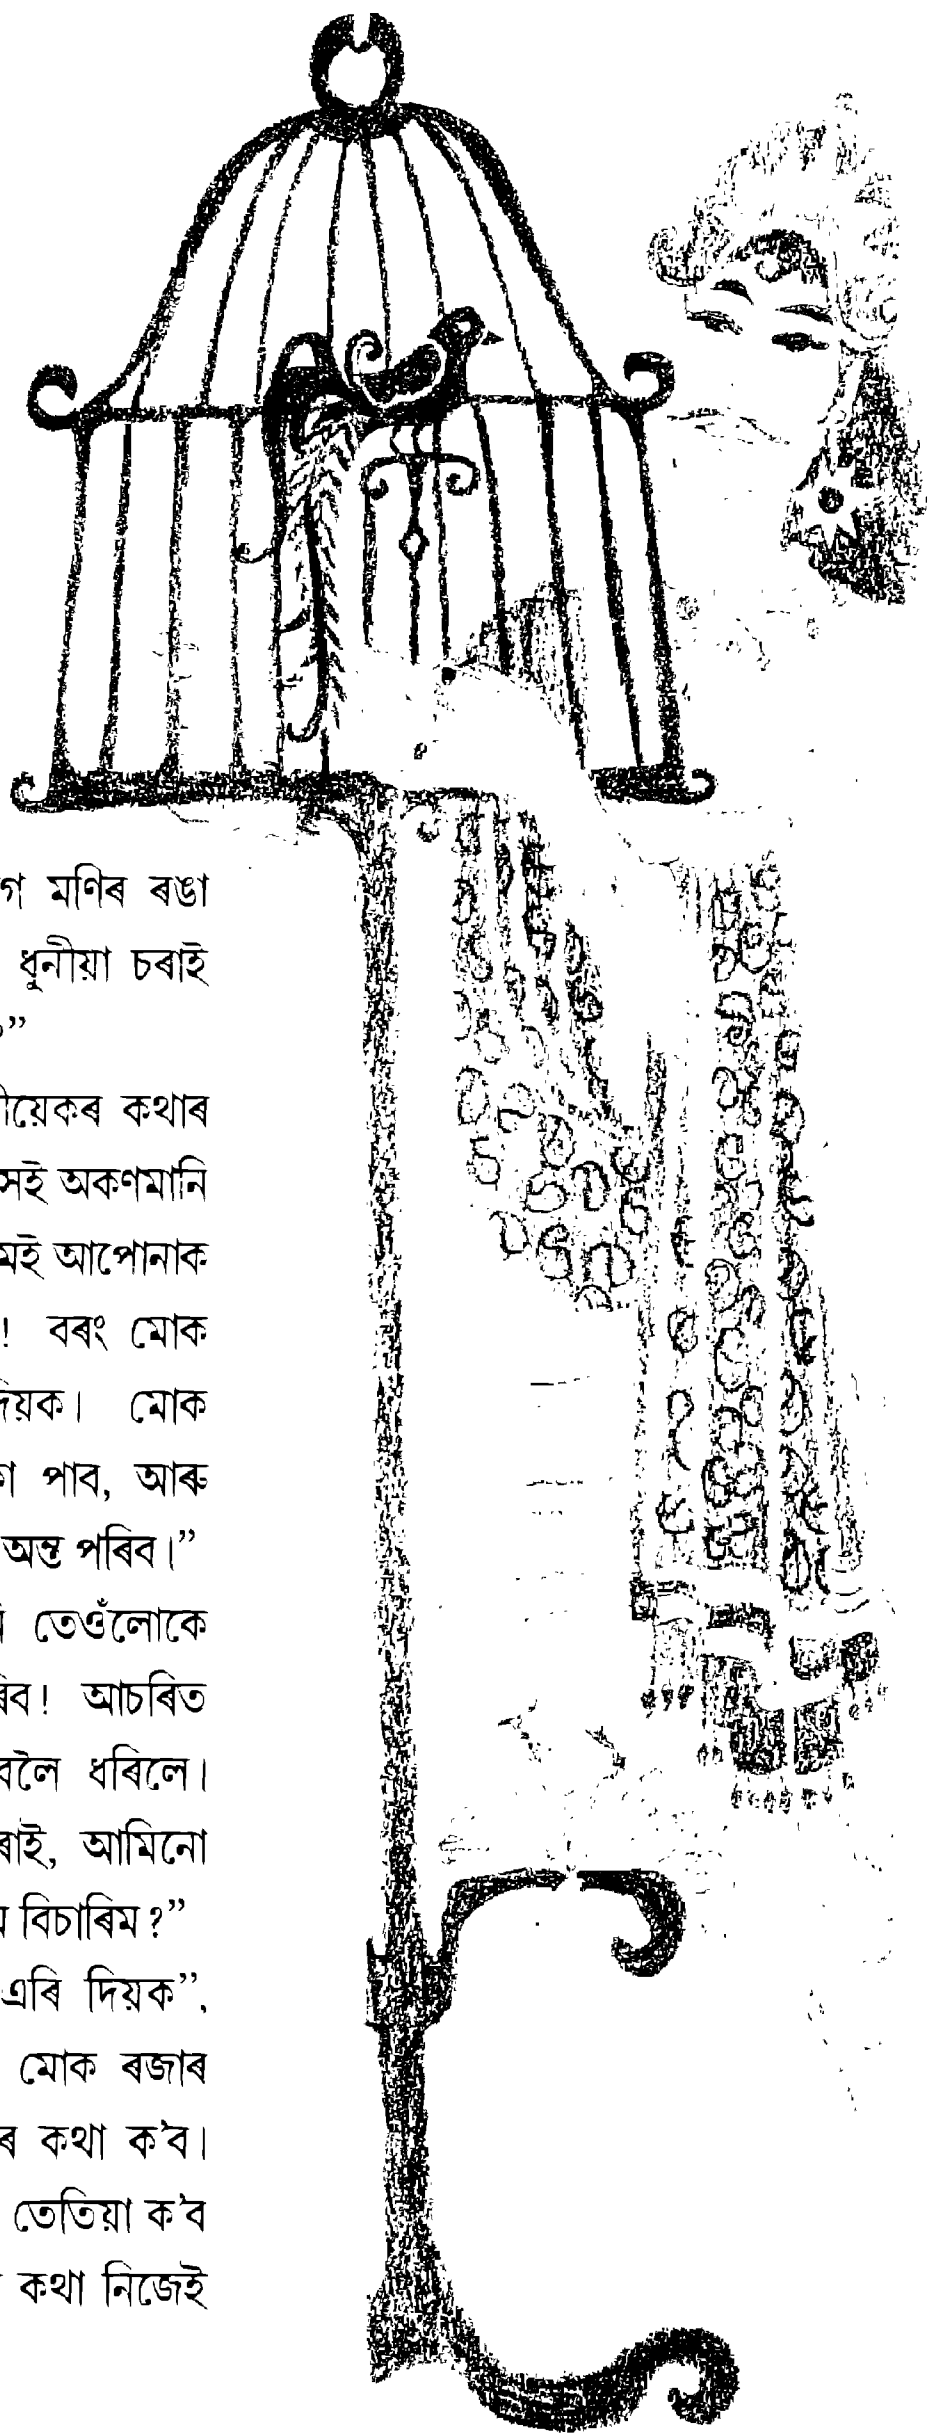 মণিৰ ৰঙা
ধুনীয়া চৰাই
”
কথাৰ
অকণমানি
আপোনাক
! বৰং মোক
দিয়ক। মোক
পাব, আৰু
অন্ত পৰিব।”
তেওঁলোকে
! আচৰিত
ধৰিলে।
আমিনো
বিচাৰিম?”
এৰি দিয়ক”,
মোক ৰজাৰ
কথা ক'ব।
তেতিয়া ক'ব
কথা নিজেই